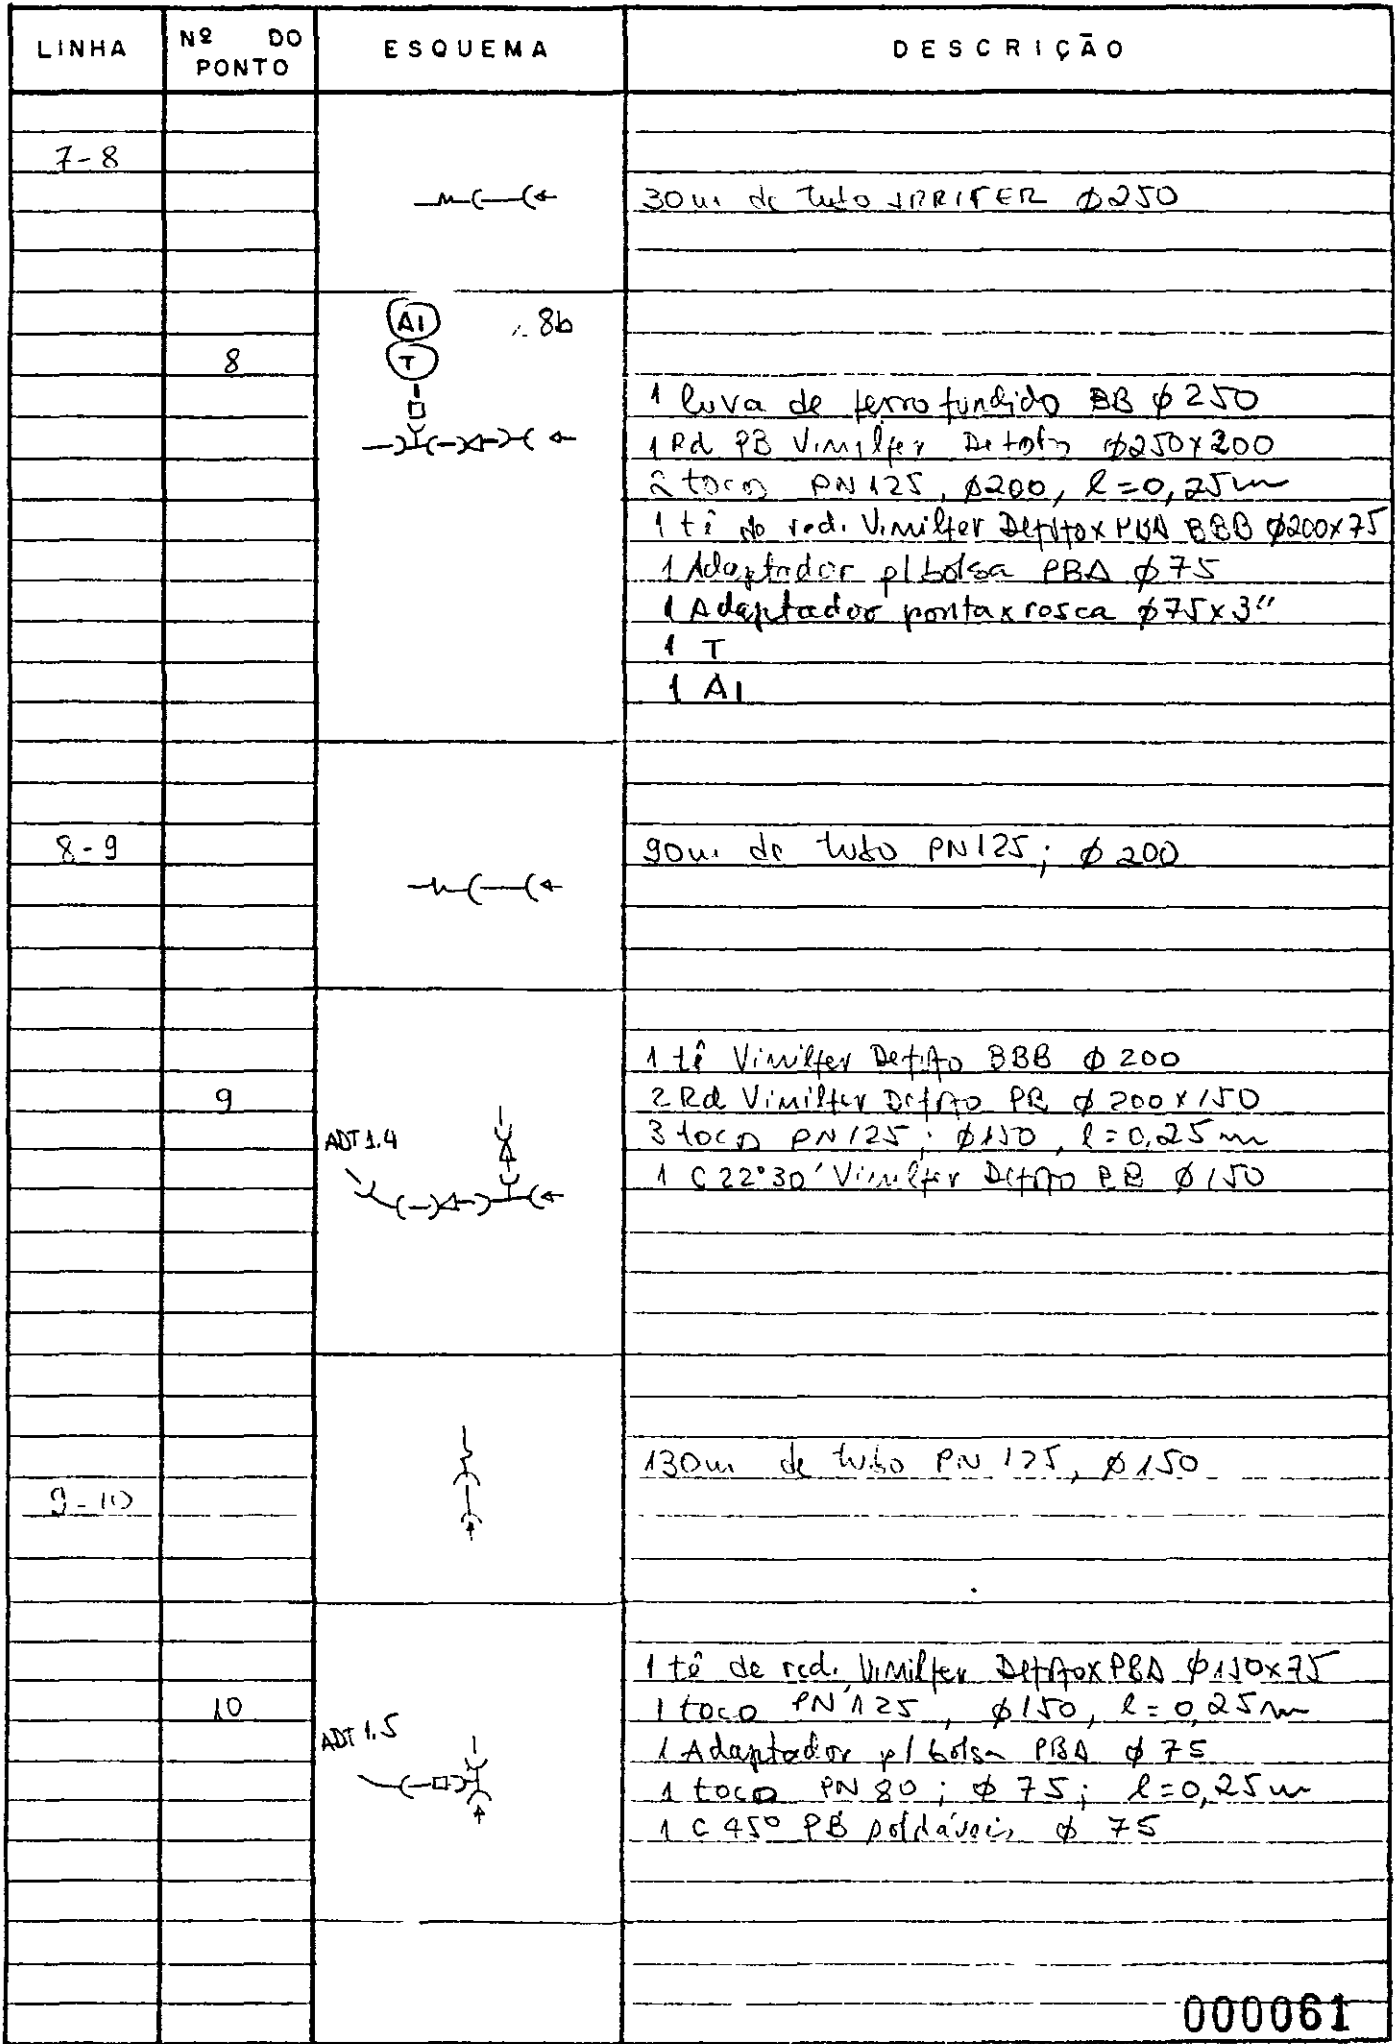 LINHA
Nº DO PONTO
ESQUEMA
DESCRIÇÃO
7-8
30m de tubo IRRIFER ø250
AI
8b
8
T
1 luva de ferro fundido BB ø 250
1 Rd PB Vinilfer Defofo ø250x200
2 tocos PN125, ø200, l=0,25m
1 tê de red. Vinilfer Defofo x PBA BBB ø200x75
1 Adaptador p/ bolsa PBA ø 75
1 Adaptador ponta x rosca ø75x3"
1 T
1 AI
8-9
90m de tubo PN125; ø 200
1 tê Vinilfer Defofo BBB ø 200
9
2 Rd Vinilfer Defofo PB ø 200x150
ADT 1.4
3 tocos PN125; ø150, l=0,25m
1 C 22°30' Vinilfer Defofo PB ø 150
130m de tubo PN 125, ø150
9-10
1 tê de red. Vinilfer Defofo x PBA ø150x75
10
1 toco PN 125, ø150, l=0,25m
ADT 1.5
1 Adaptador p/ bolsa PBA ø 75
1 toco PN 80; ø 75; l=0,25m
1 C 45° PB soldável, ø 75
000061